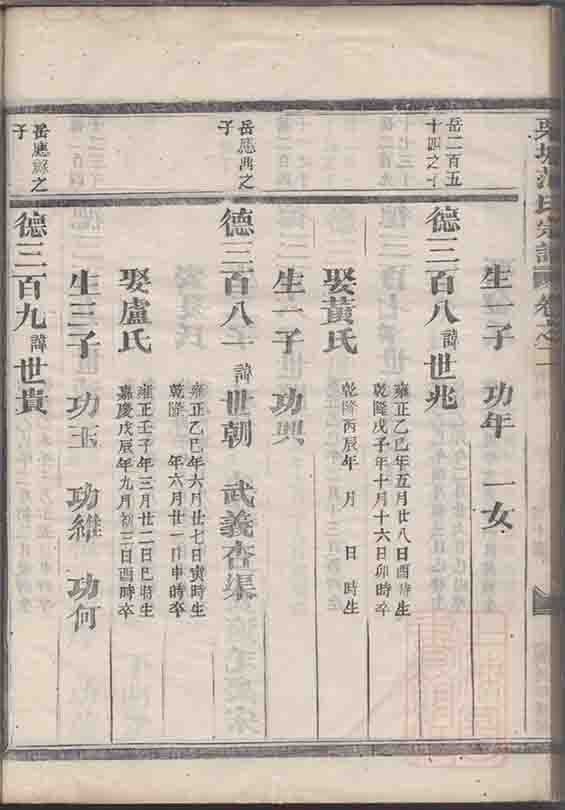 范氏宗譜 卷之二
生一子 功年 一女
岳二百五十四之子
德三百八 諱世兆
雍正乙巳年五月廿八日酉時生
乾隆戊子年十月十六日卯時卒
娶黃氏
乾隆丙辰年 月 日 時生
生一子 功興
岳應禹之子
德三百八一 諱世朝 武義杏渠
雍正乙巳年六月廿七日寅時生
乾隆 年六月廿一日申時卒
娶盧氏
雍正壬子年三月廿二日巳時生
嘉慶戊辰年九月初三日酉時卒
生三子 功玉 功維 功何
岳應 之子
德三百九 諱世貴